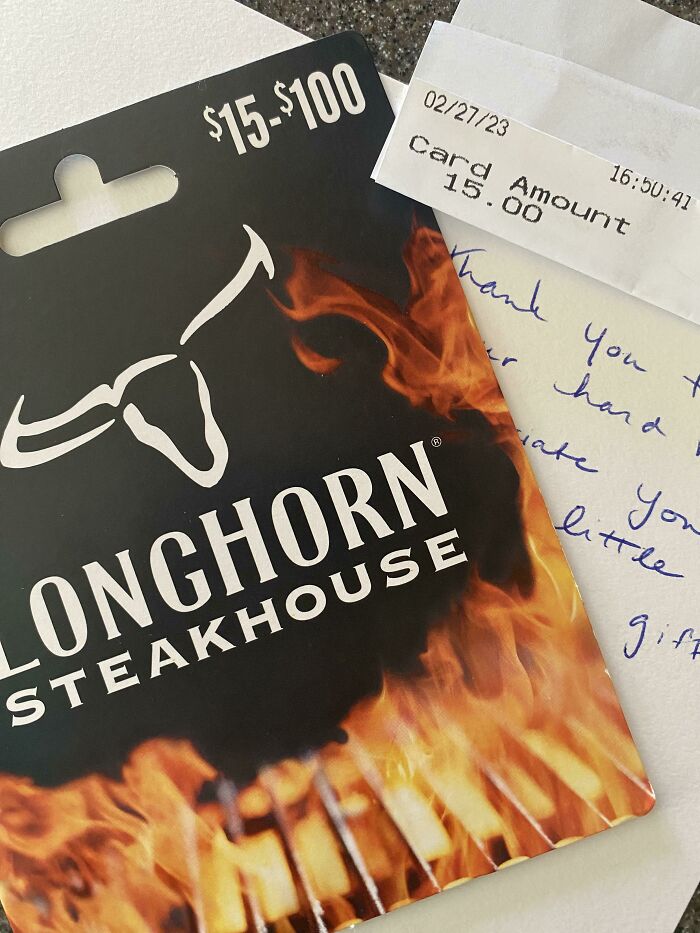 $15-$100
LONGHORN®
STEAKHOUSE
02/27/23 16:50:41
Card Amount
15.00
Thank you
hard
you
little
gift